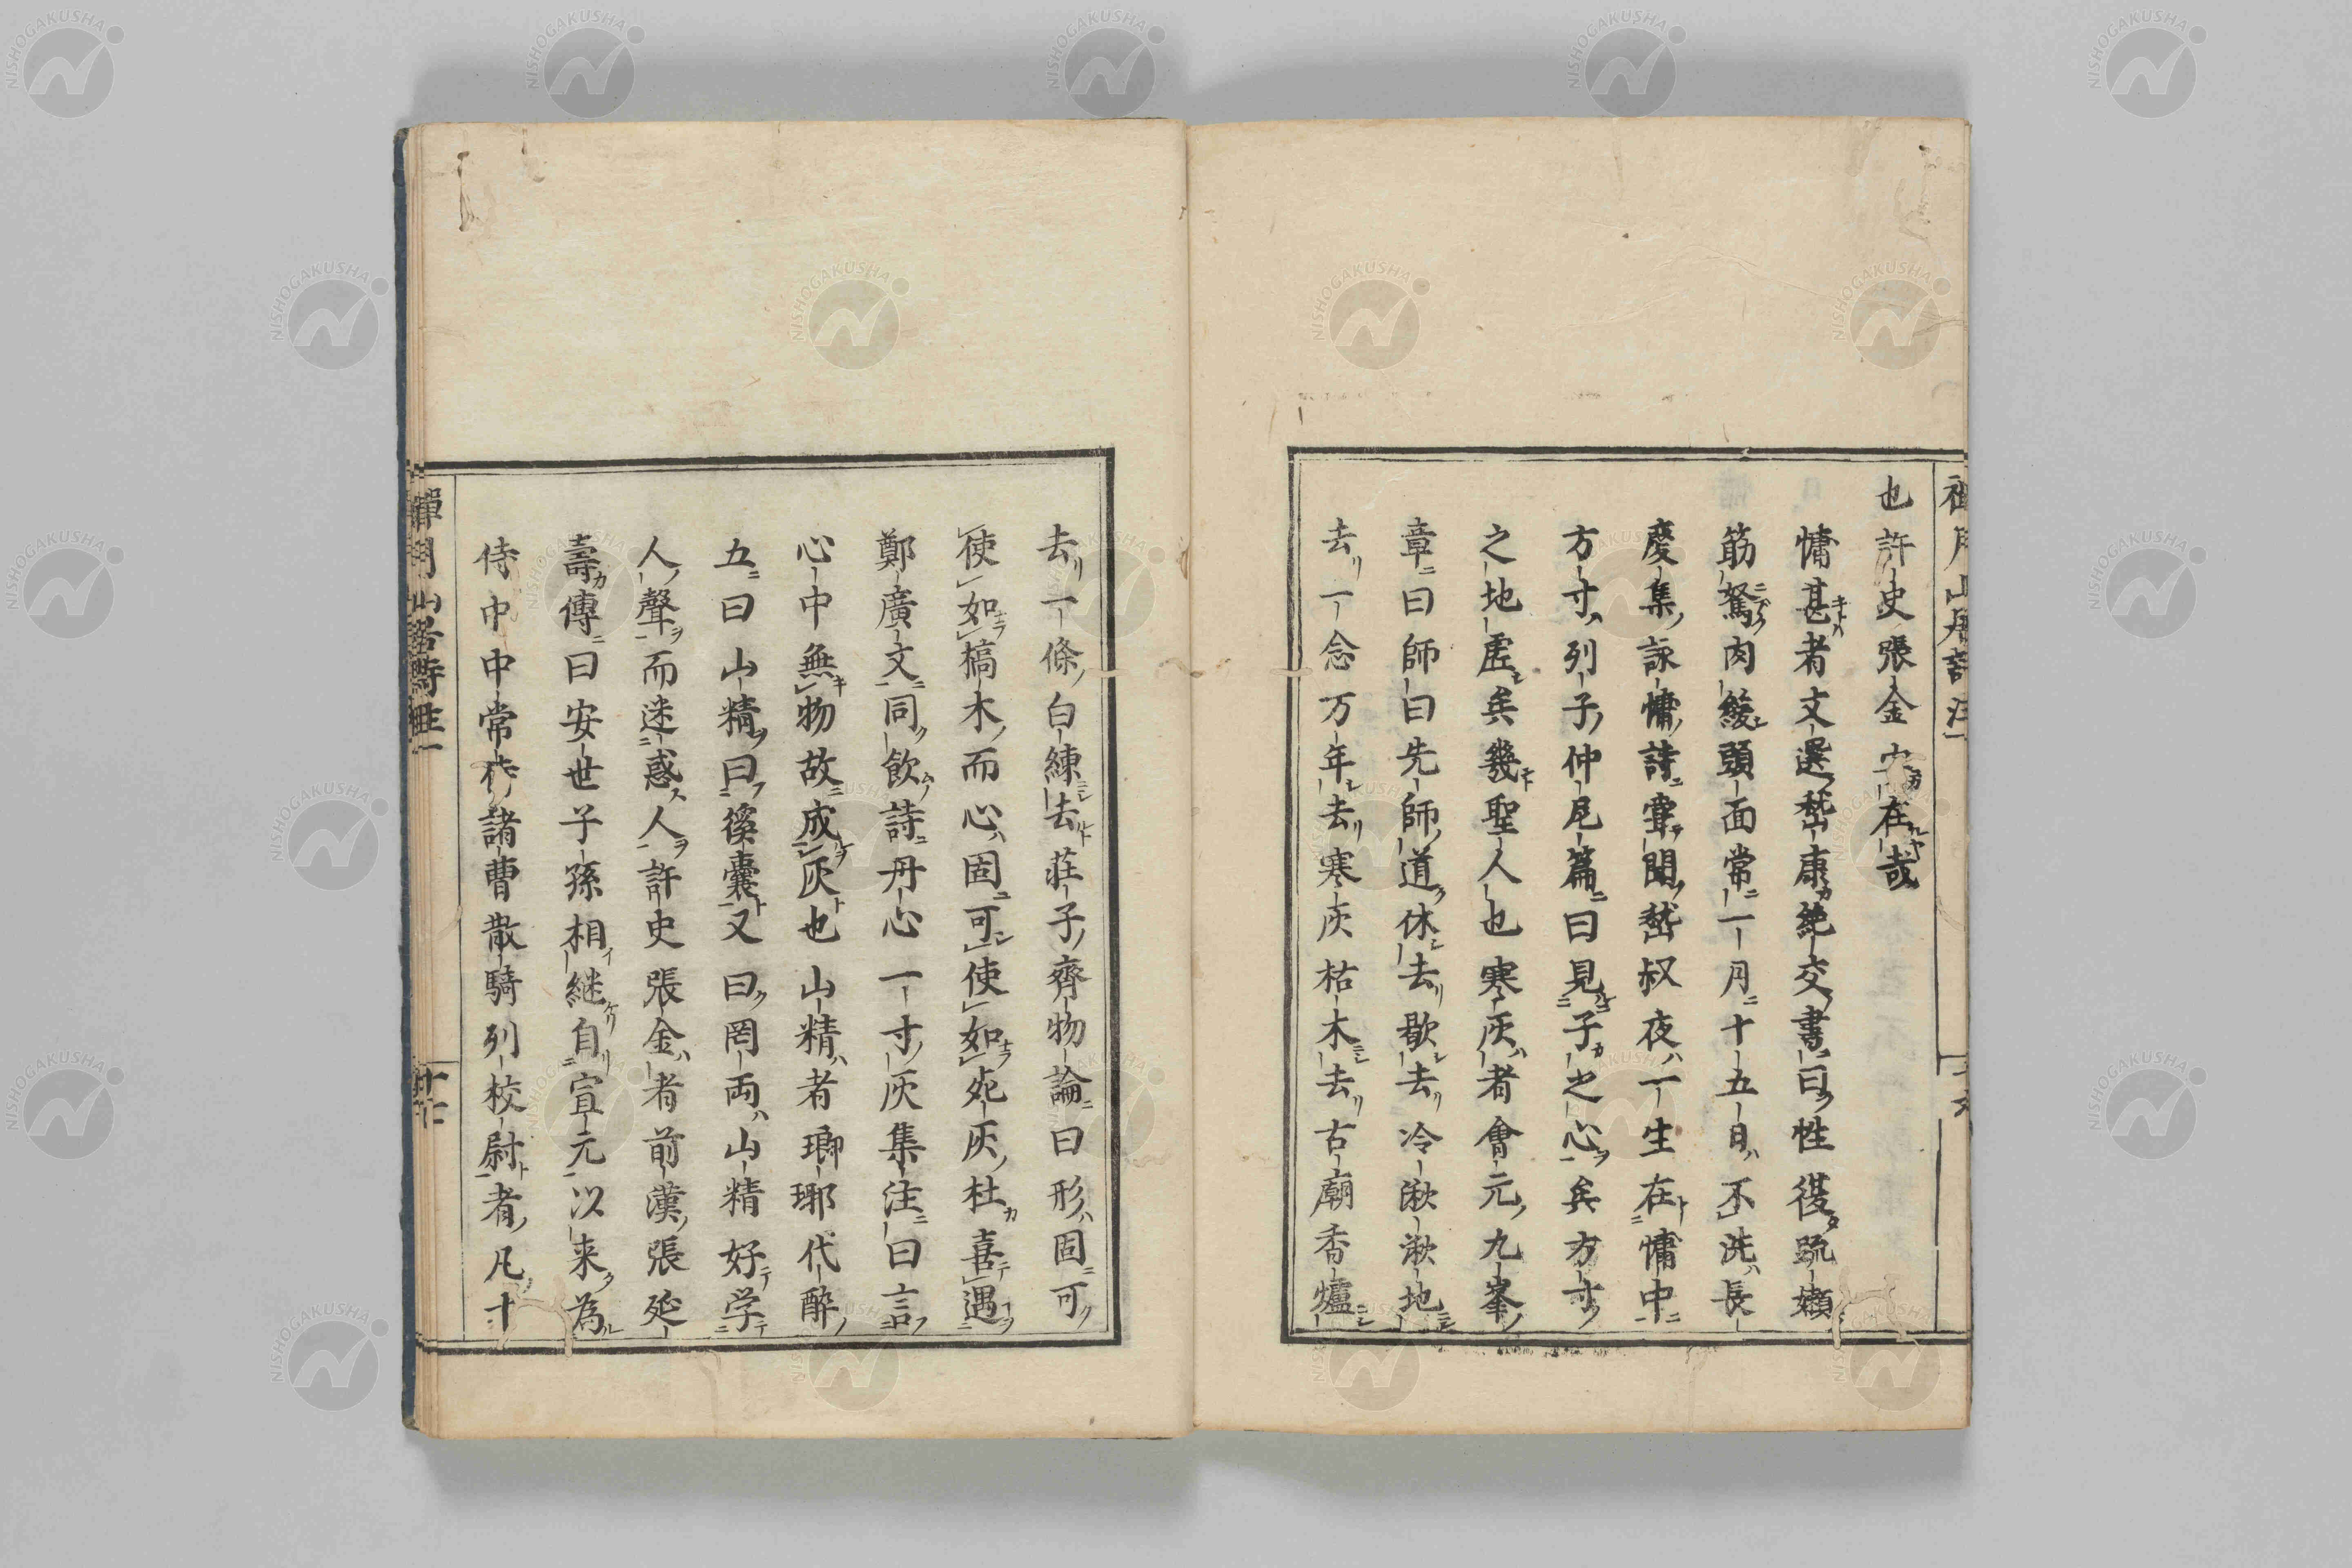 也許史張金安在哉
慵甚者文選嵆康絶交書曰性復疏嬾
筋駑肉緩頭面常一月十五日不洗長
慶集詠慵詩甞聞嵆叔夜一生在慵中
方寸列子仲尼篇曰見子之心矣方寸
之地虚矣幾聖人也寒灰者會元九峯
章曰師曰先師道休去歇去冷湫湫地
去一念万年去寒灰枯木去古廟香爐
去一條白練去莊子齊物論曰形固可
使如槁木而心固可使如死灰杜喜遇
鄭廣文同飲詩丹心一寸灰集注曰言
心中無物故成灰也山精者瑯琊代醉
五曰山精曰傒囊又曰罔両山精好学
人聲而迷惑人許史張金者前漢張延
壽傳曰安世子孫相継自宣元以来為
侍中中常侍諸曹散騎列校尉者凡十
禪月山居詩註一
NISHOGAKUSHA